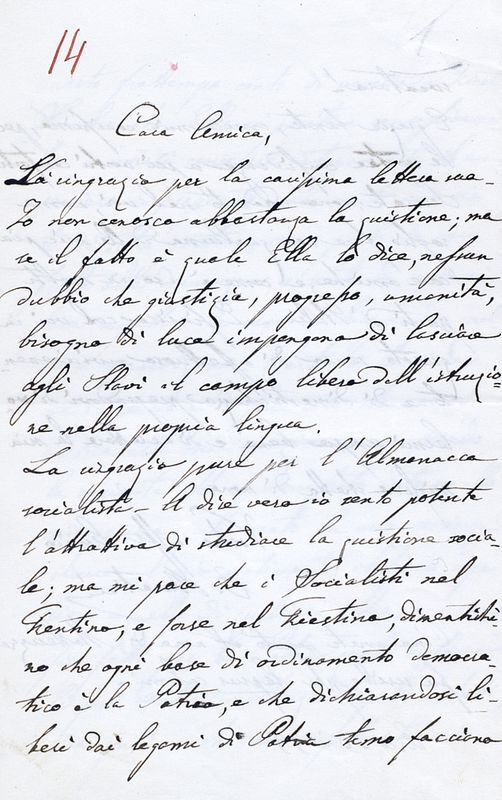 14
1
Cara Amica,
La ringrazio per la carissima lettera sua -
Io non conosco abbastanza la quistione; ma
se il fatto è quale Ella lo dice, nessun
dubbio che giustizia, progresso, umanità,
bisogno di luce impongono di lasciare
agli Slavi il campo libero dell'istruzio-
ne nella propria lingua.
La ringrazio pure per l'Almanacco
socialista - A dire vero io sento potente
l'attrattiva di studiare la quistione socia-
le; ma mi pare che i Socialisti nel
Trentino, e forse nel Triestino, dimentichi-
no che ogni base di ordinamento democra
tico è la Patria, e che dichiarandosi li-
beri dai legami di Patria temo facciano